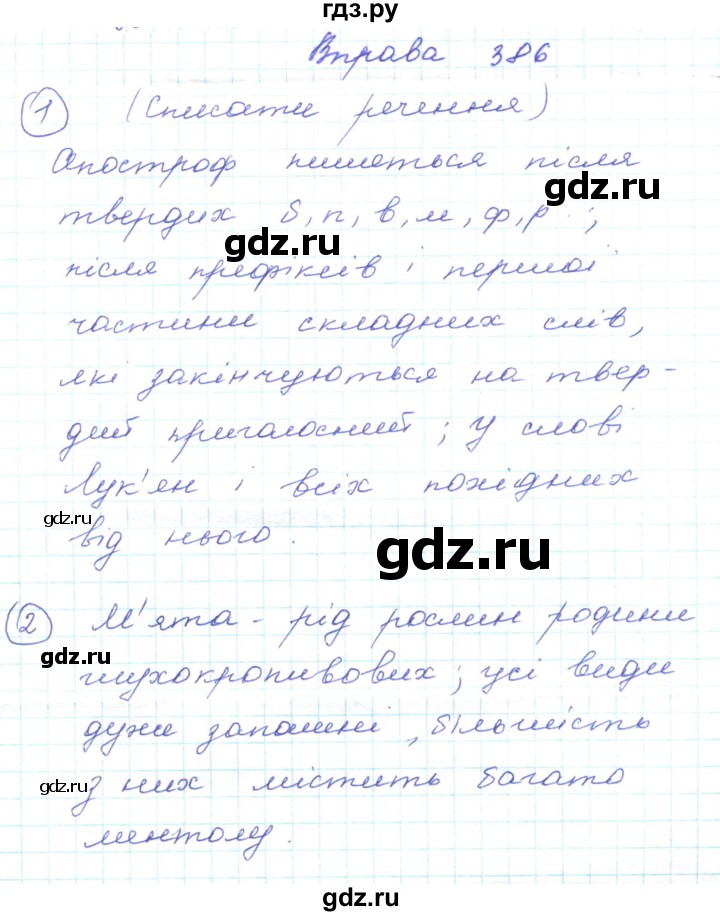 гдз.ру
Вправа 386
1 (Списати речення)
Апостроф пишеться після
gdz.ru
твердих б, п, в, м, ф, р ;
gdz.ru
після префіксів і першої
частини складних слів,
які закінчуються на твер-
дий приголосний; у слові
Лук'ян і всіх похідних
gdz.ru
від нього.
gdz.ru
2 М'ята - рід рослин родини
gdz.ru
глухокропивових; усі види
дуже запашні, більшість
gdz.ru
з них містить багато
ментолу.
gdz.ru